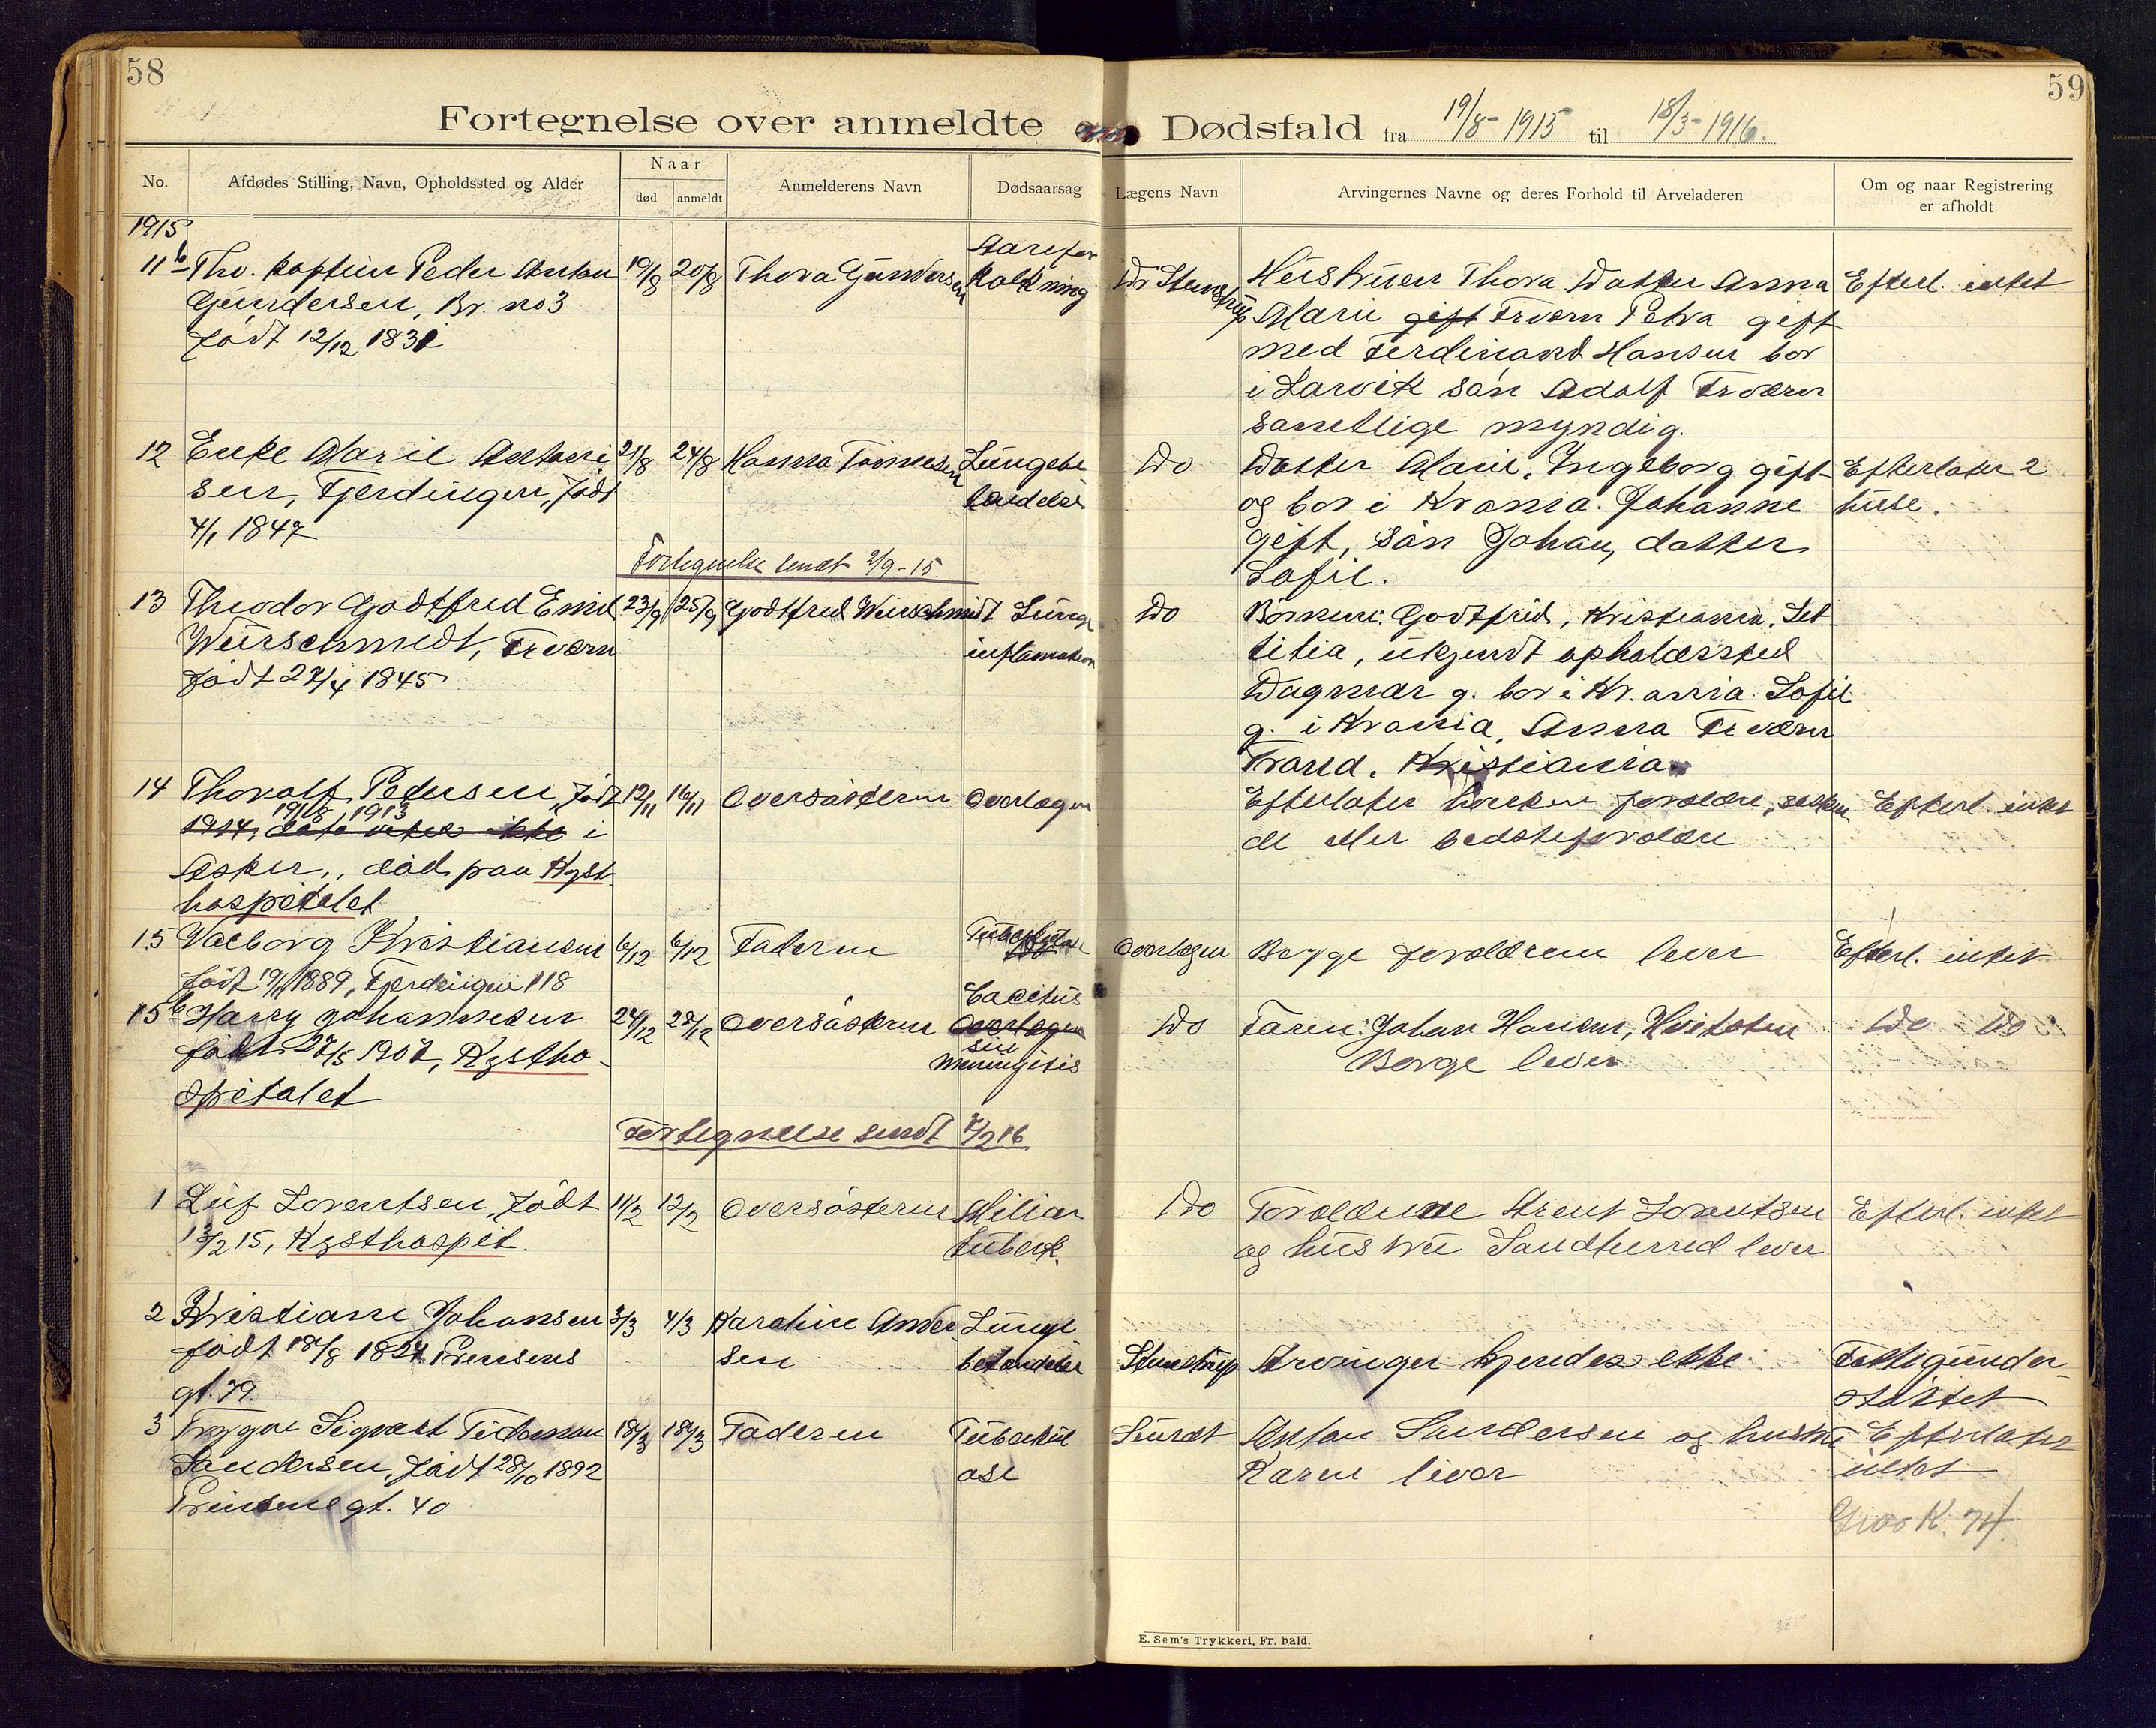 58
59
Fortegnelse over anmeldte
Dødsfald fra 19/8-1915 til 18/3-1916.
No.
Afdødes Stilling, Navn, Opholdssted og Alder
Naar
død
anmeldt
Anmelderens Navn
Dødsaarsag
Lægens Navn
Arvingernes Navne og deres Forhold til Arveladeren
Om og naar Registrering
er afholdt
1915
11b Fhv. Kaptein Peder Anton
Gundersen, Br. no 3
født 12/12 1831
19/8
20/8
Thora Gundersen
Aarefor
kalkning
Dr Stenstrup
Hustruen Thora Datter Anna
Marie gift Trværn Petra gift
med Ferdinand Hansen bor
i Larvik søn Adolf Tr værn
samtlige myndig.
Efterl. intet
12 Enke Marie Antoni
sen, Fjerdingen, født
4/1 1847
21/8
24/8
Hanna Tønnesen
Lungebe
tændelse
Do
Datter Marie, Ingeborg gift
og bor i Krania. Johanne
gift, søn Johan, datter
Sofie.
Efterlater 2
huse.
Fortegnelse sendt 2/9-15.
13 Theodor Godtfred Emil
Wurschmidt, Frværn
født 27/4 1845
23/9
25/9
Godtfred Wurschmidt
Lunge
inflamation
Do
Børnene: Godtfrid, Kristiania, Let
titia, ukjendt opholdssted
Dagmar g. bor i Kr.ania. Sofie
g. i Krania, Anna Frværn
Trand. Kristiania
14 Thoralf Pedersen, født
19/8 1913
1914, dato vites ikke i
Asker, død paa Kyst
hospitalet
12/11
16/11
Oversøsteren
Overlægen
Efterlater hverken forældre, søsken
de eller bedsteforældre
Efterl. intet
15 Valborg Kristiansen
født 19/11 1889, Fjerdingen 118
6/12
6/12
Faderen
Overlægen
Begge forældrene lever
Efterl. intet
15b Harry Johannesen
født 27/5 1907, Kystho
spitalet
24/12
28/12
Oversøsteren
Overlægen
Meningitis
Do
Faren: Johan Hansen, Hvitsten
Borge lever
Do Do
Fortegnelse sendt 7/2 16
1 Leif Lorentsen, født
13/2 15, Kysthospit.
11/2
12/2
Oversøsteren
Miliær
tuberk.
Do
Forældrene Arent Lorentsen
og hustru Sandherred lever
Efterl. intet
2 Kristiane Johansen
født 18/8 1824 Prinsens
gt. 79.
3/3
4/3
Karoline Ander
sen
Lunge
betændelse
Stenstrup
Arvinger kjendes ikke
Fattigunder-
støttet
3 Trygve Sigvart Tideman
Sandersen, født 28/10 1892
Prinsens gt. 40
18/3
18/3
Faderen
Tuberkul
ose
Lundt
Anton Sandersen og hustru
Karen lever
Efterlater
intet
E. Sem's Trykkeri, Fr. hald.